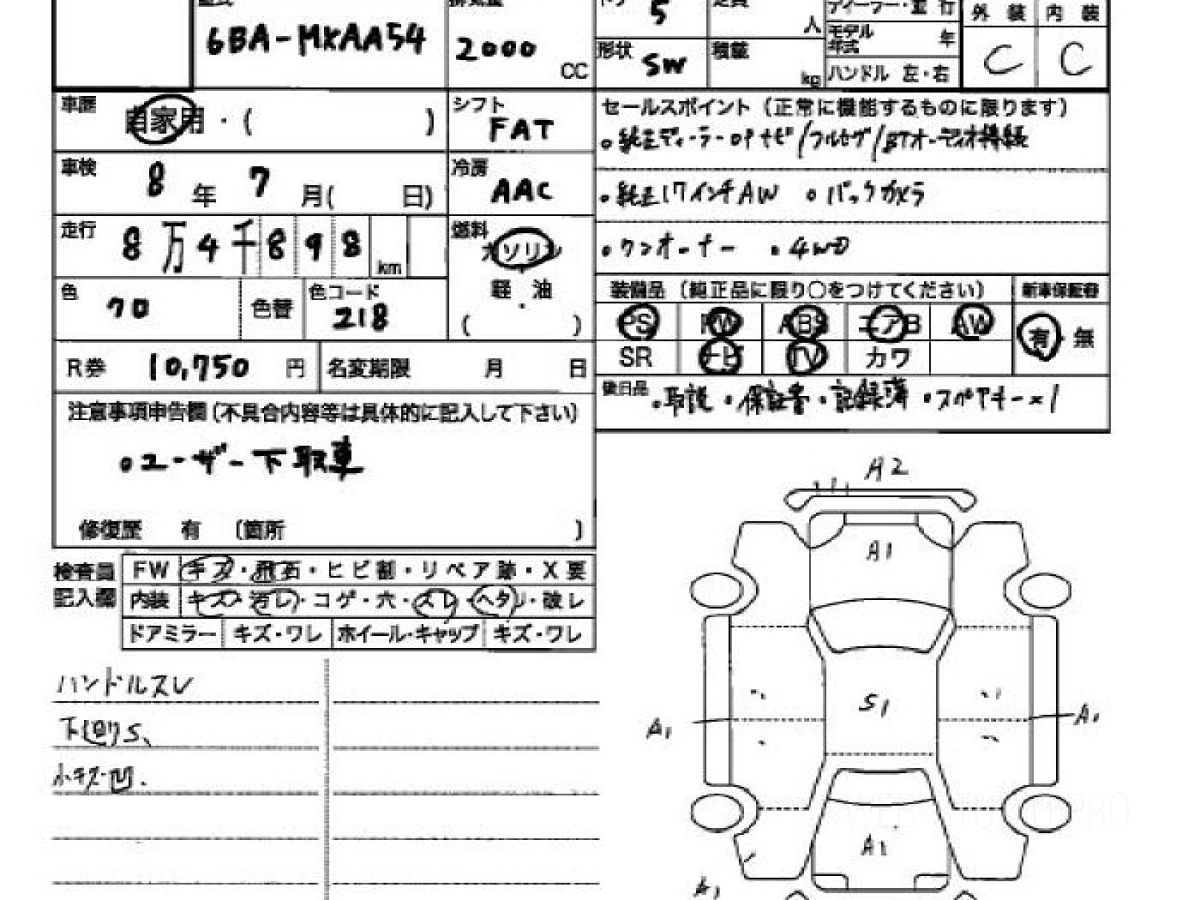 6BA-MXAA54 2000 CC
ドア 5 定員 人
形状 SW 積載 kg
ディーラー・並行
モデル年式 年
ハンドル 左・右
外装 内装
C C
車歴 自家用・( )
シフト FAT
車検 8年 7月( 日)
冷房 AAC
走行 8万4千898km
燃料 ガソリン
軽油
( )
色 クロ 色替 色コード 218
R券 10,750円 名変期限 月 日
セールスポイント(正常に機能するものに限ります)
。純正ディーラーOPナビ/フルセグ/BTオーディオ接続
。純正17インチAW 。バックカメラ
。ワンオーナー 。4WD
装備品(純正品に限り○をつけてください) 新車保証書
PS PW ABS エアB AW 有・無
SR ナビ TV カワ
後日品 。取説 。保証書 。記録簿 。スペアキー×1
注意事項申告欄(不具合内容等は具体的に記入して下さい)
。ユーザー下取車
修復歴 有 〔箇所 〕
検査員記入欄
FW キズ・飛石・ヒビ割・リペア跡・X要
内装 キズ・汚レ・コゲ・穴・スレ・ヘタリ・破レ
ドアミラー キズ・ワレ ホイール・キャップ キズ・ワレ
ハンドルスレ
下廻りS、
小キズ凹.
A2
A1
S1
A1 A1
A1
A1